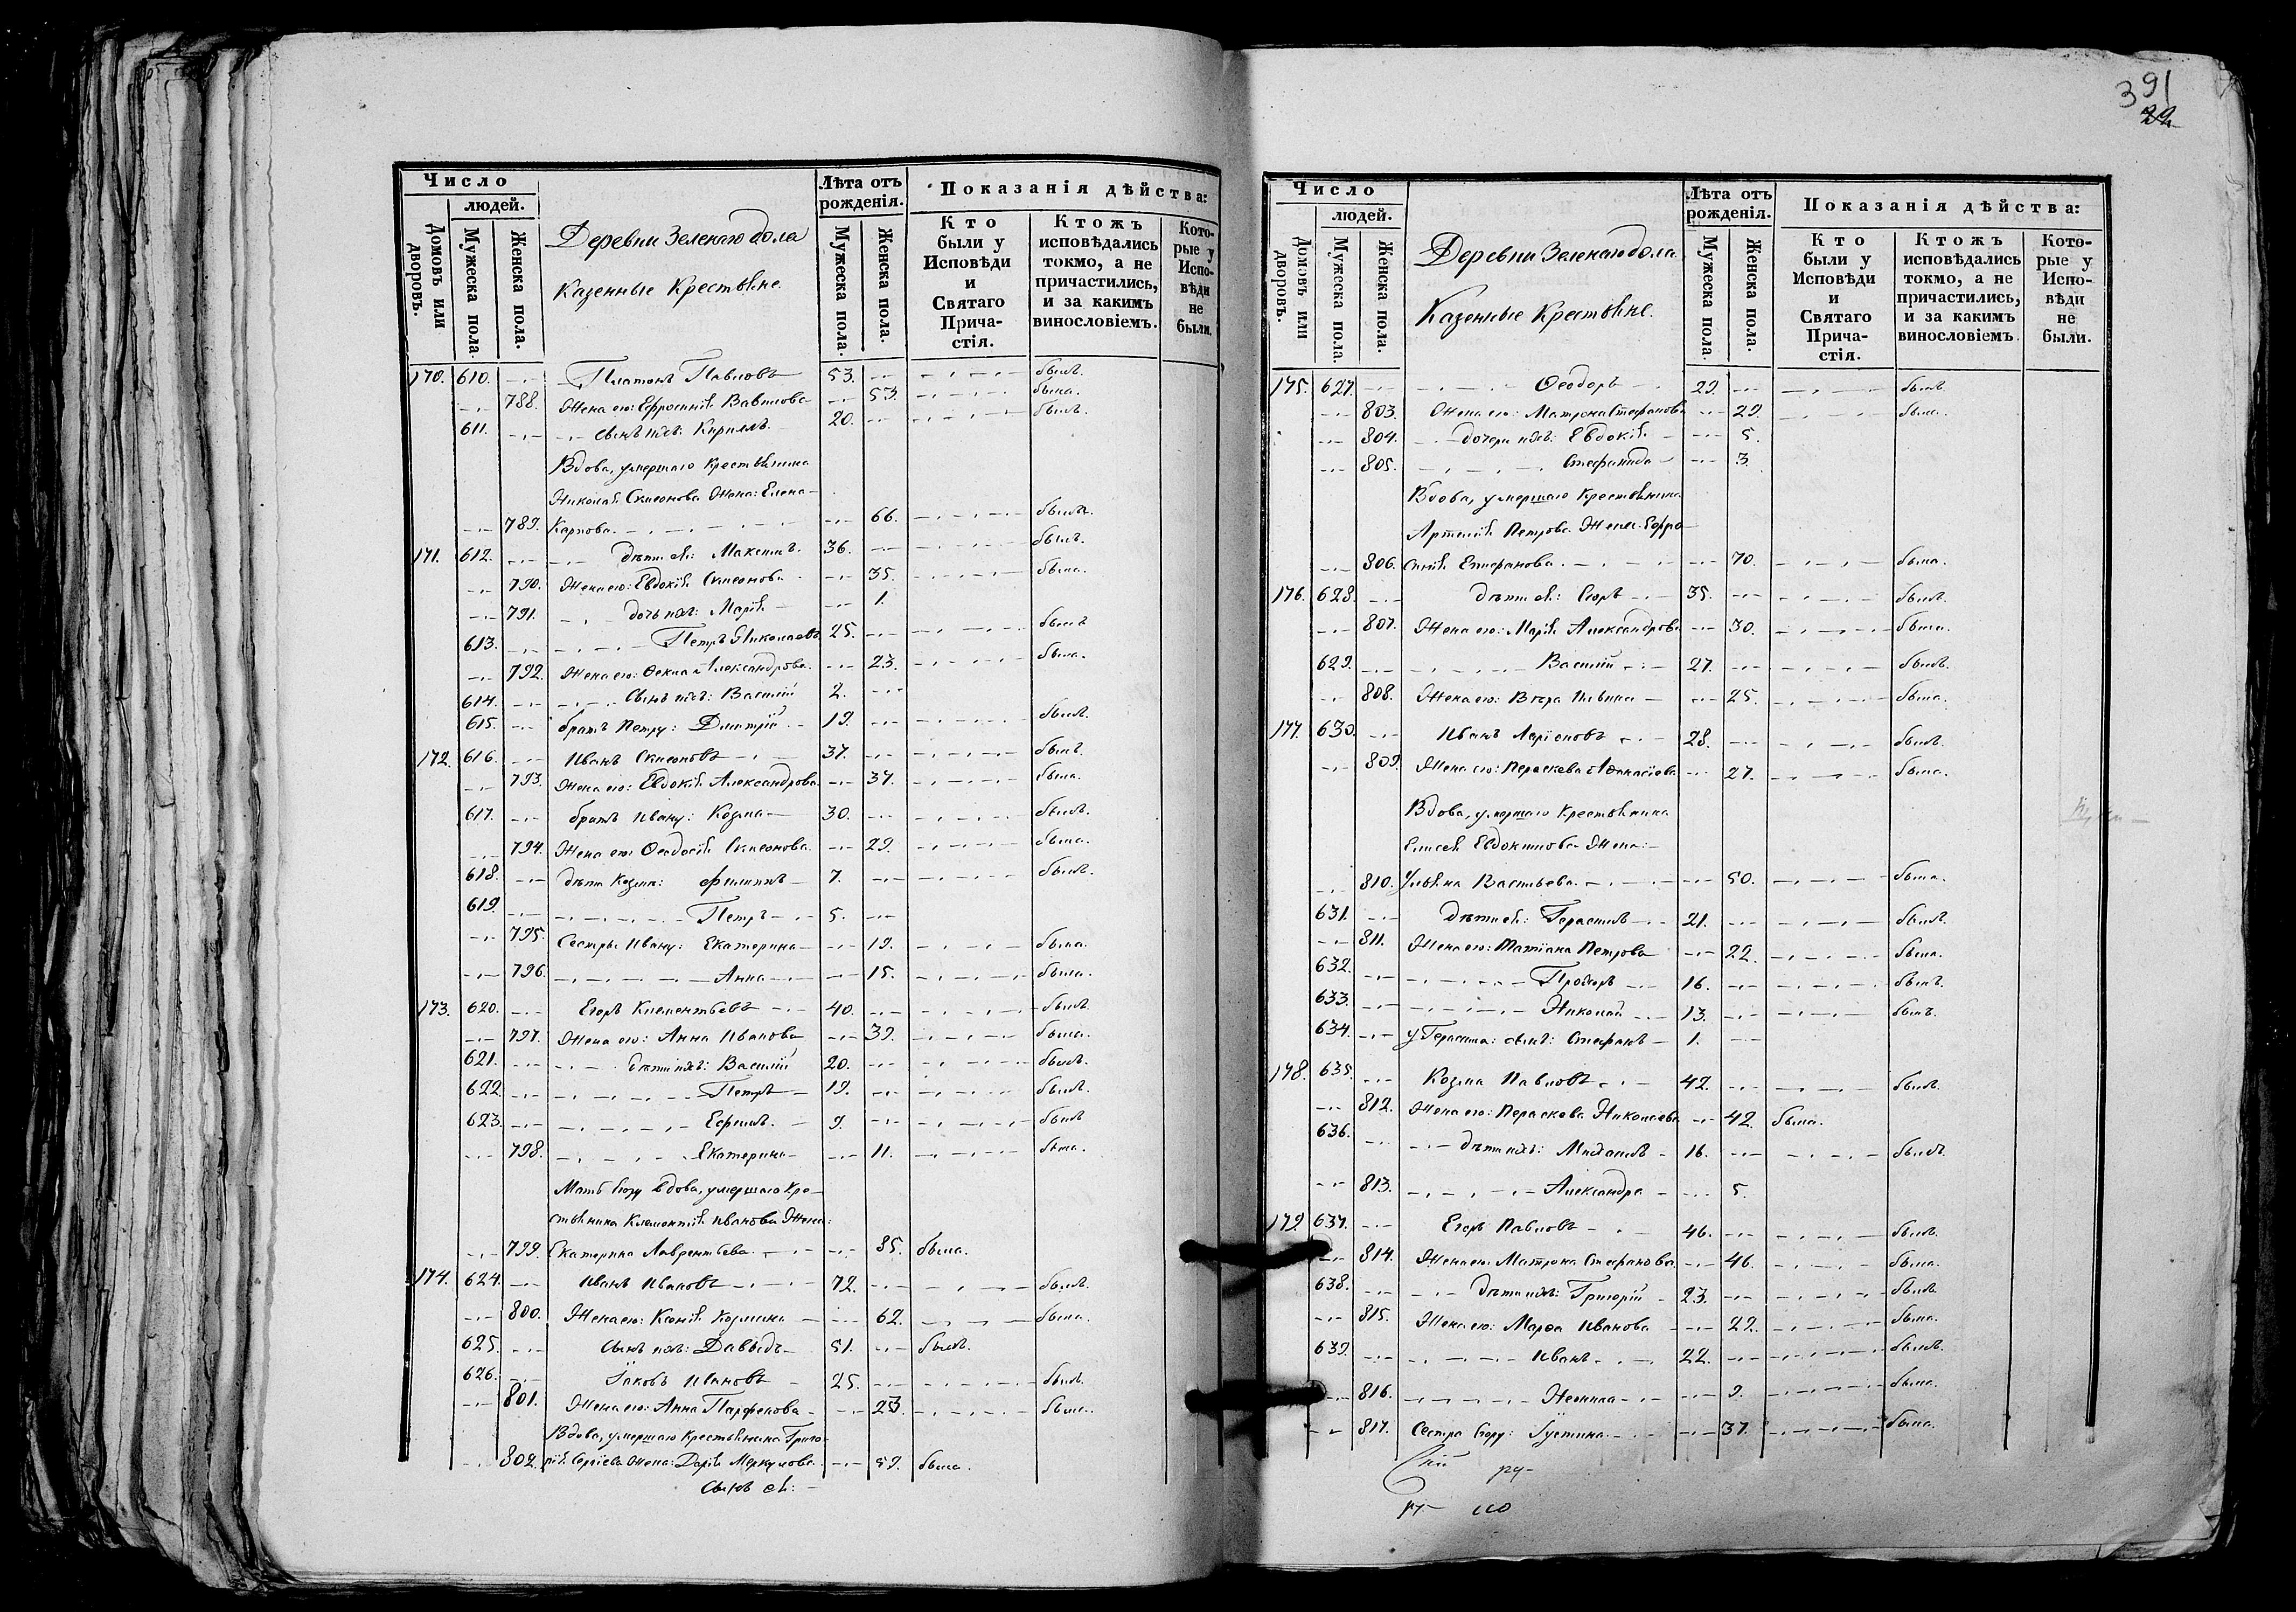 391
22
Число
людей.
Домовъ или дворовъ.
Мужеска пола.
Женска пола.
Деревни Зеленаго дола
Казенные Крестьяне.
Лѣта отъ рожденія.
Мужеска пола.
Женска пола.
Показанія дѣйства:
Кто были у Исповѣди и Святаго Прича- стія.
Ктожъ исповѣдались токмо, а не причастились, и за какимъ винословіемъ.
Кото- рые у Испо- вѣди не были.
170. 610. Платонъ Павловъ 53. былъ.
788. Жена его: Ефросинія Вавилова 53. была.
611. сынъ ихъ: Кириллъ 20. былъ.
Вдова, умершаго Крестьянина
Николая Симеонова Жена: Елена
789. Карпова 66. была.
171. 612. дѣти ея: Максимъ. 36. былъ.
790. Жена его: Евдокія Симеонова 35. была.
791. дочь ихъ: Марія 1.
613. Петръ Николаевъ 25. былъ
792. Жена его: Фекла Александрова. 23. была.
614. Сынъ ихъ: Василій 2.
615. братъ Петру: Димитрій 19. былъ.
172. 616. Иванъ Симеоновъ 37. былъ.
793. Жена его: Евдокія Александрова. 37. была.
617. братъ Ивану: Козма 30. былъ.
794. Жена его: Феодосія Симеонова. 29. была.
618. дѣти Козмы: Филиппъ 7. былъ.
619. Петръ 5.
795. Сестры Ивану: Екатерина 19. была.
796. Анна 15. была.
173. 620. Егоръ Климентьевъ 40. былъ.
797. Жена его: Анна Иванова 39. была.
621. дѣти ихъ: Василій 20. былъ.
622. Петръ 19. былъ.
623. Ефимъ. 9. былъ
798. Екатерина 11. была.
Мать Егору вдова, умершаго Кре-
стьянина Климентія Иванова Жена:
799. Екатерина Лаврентьева. 85. была.
174. 624. Иванъ Ивановъ 72. былъ.
800. Жена его: Ксенія Козмина 62. была.
625. Сынъ ихъ: Давыдъ 51. былъ.
626. Іаковъ Ивановъ 25. былъ.
801. Жена его: Анна Парфенова 23. была.
Вдова, умершаго Крестьянина Григо-
802. рія Сергіева Жена: Дарія Меркулова 59. была.
Сынъ ея:
Число
людей.
Домовъ или дворовъ.
Мужеска пола.
Женска пола.
Деревни Зеленаго дола.
Казенные Крестьяне.
Лѣта отъ рожденія.
Мужеска пола.
Женска пола.
Показанія дѣйства:
Кто были у Исповѣди и Святаго Прича- стія.
Ктожъ исповѣдались токмо, а не причастились, и за какимъ винословіемъ.
Кото- рые у Испо- вѣди не были.
175. 627. Феодоръ 29. былъ
803. Жена его: Матрона Стефанова 29. была.
804. дочери ихъ: Евдокія 5.
805. Стефанида 3.
Вдова, умершаго Крестьянина
Артемія Петрова Жена: Ефро-
806. синія Епифанова. 70. была.
176. 628. дѣти ея: Егоръ 35. былъ.
807. Жена его: Марія Александрова 30. была.
629. Василій 27. былъ.
808. Жена его: Вѣра Ильина 25. была.
177. 630. Иванъ Ларіоновъ 28. былъ.
809. Жена его: Параскева Афанасіева 27. была.
Вдова, умершаго Крестьянина
Елисея Евдокимова Жена:
810. Ульяна Васильева. 50. была.
631. дѣти ея: Герасимъ 21. былъ.
811. Жена его: Татіана Петрова 22. была.
632. Прохоръ 16. былъ.
633. Николай 13. былъ.
634. у Герасима: сынъ: Стефанъ 1.
178. 635. Козма Павловъ 42. былъ.
812. Жена его: Параскева Николаева. 42. была.
636. дѣти ихъ: Михаилъ 16. былъ.
813. Александра 5.
179. 637. Егоръ Павловъ 46. былъ.
814. Жена его: Матрона Стефанова. 46. была.
638. дѣти ихъ: Григорій 23. былъ.
815. Жена его: Марфа Иванова 22. была.
639. Иванъ 22. былъ.
816. Неонила 9. была.
817. Сестра Егору: Іустина 37. была.